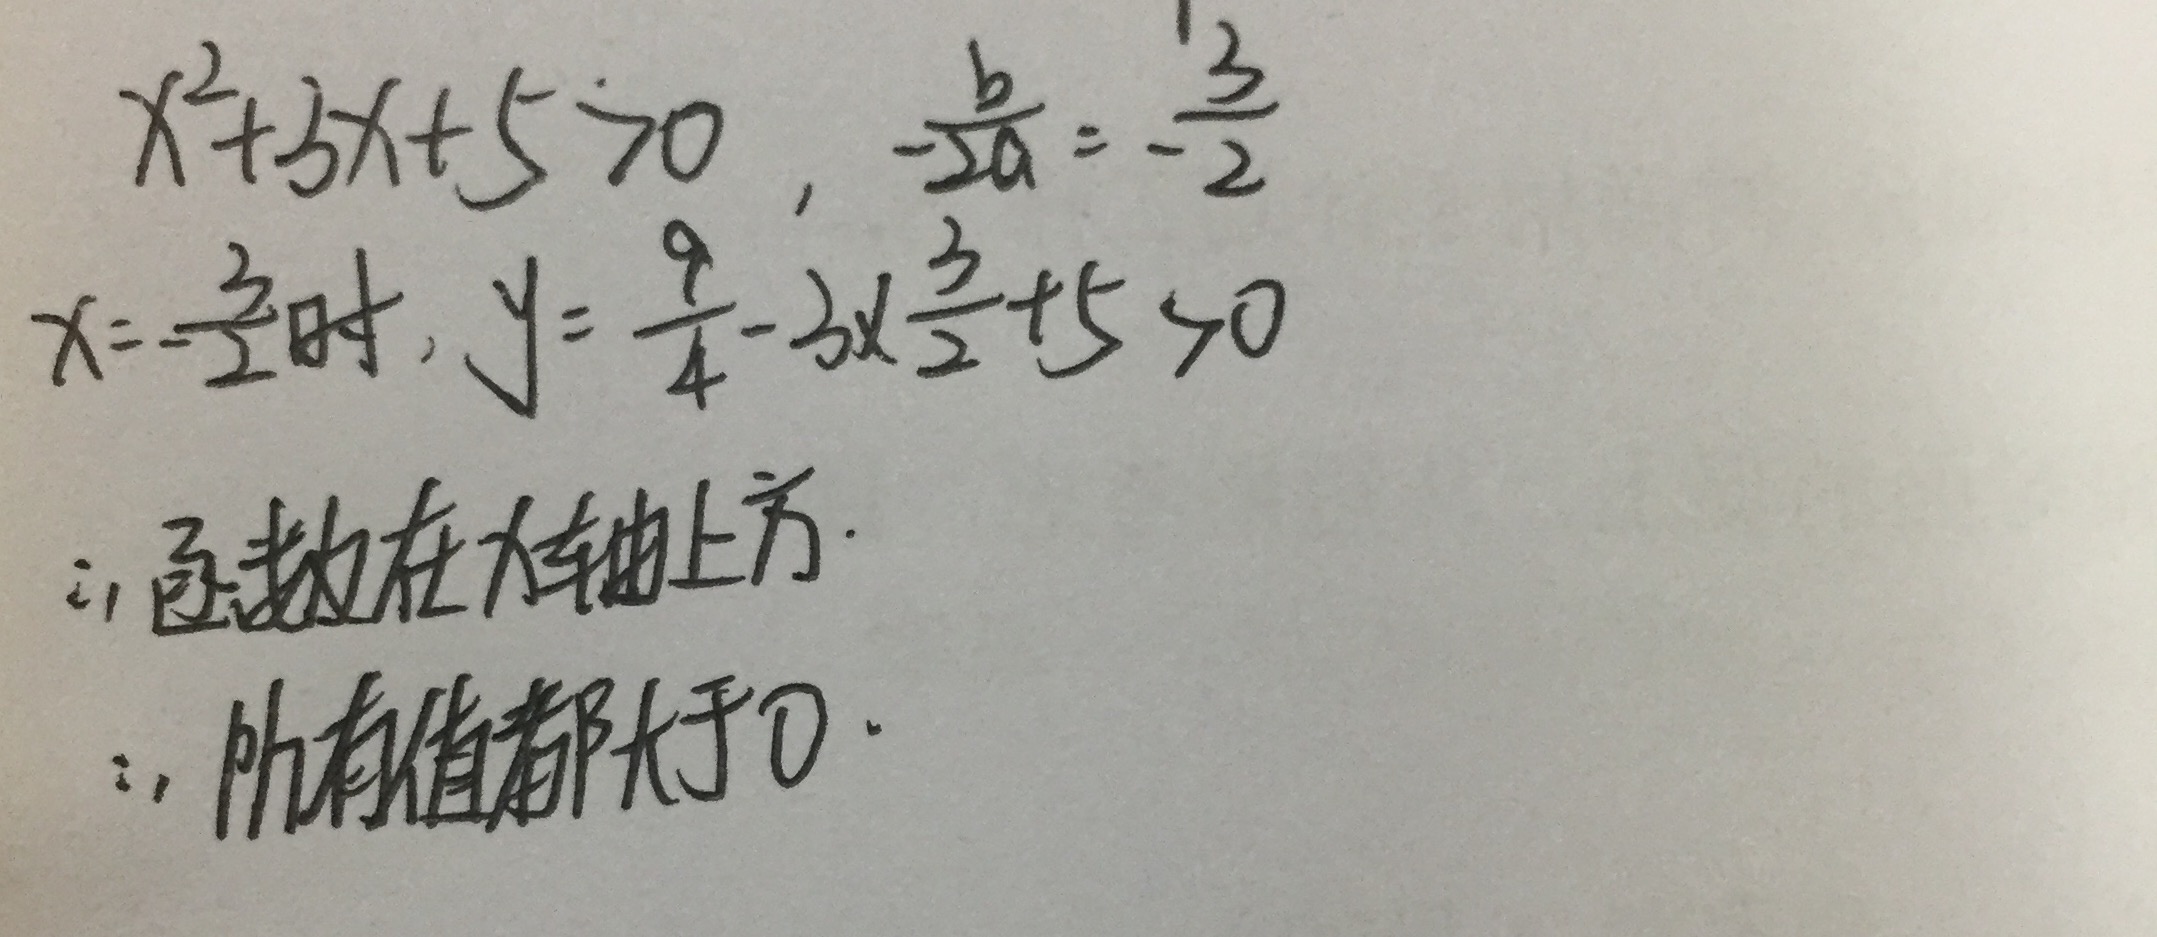 x²+3x+5>0, -b/2a=-3/2
x=-3/2时, y=9/4-3×3/2+5>0
∴函数在x轴上方.
∴所有值都大于0.